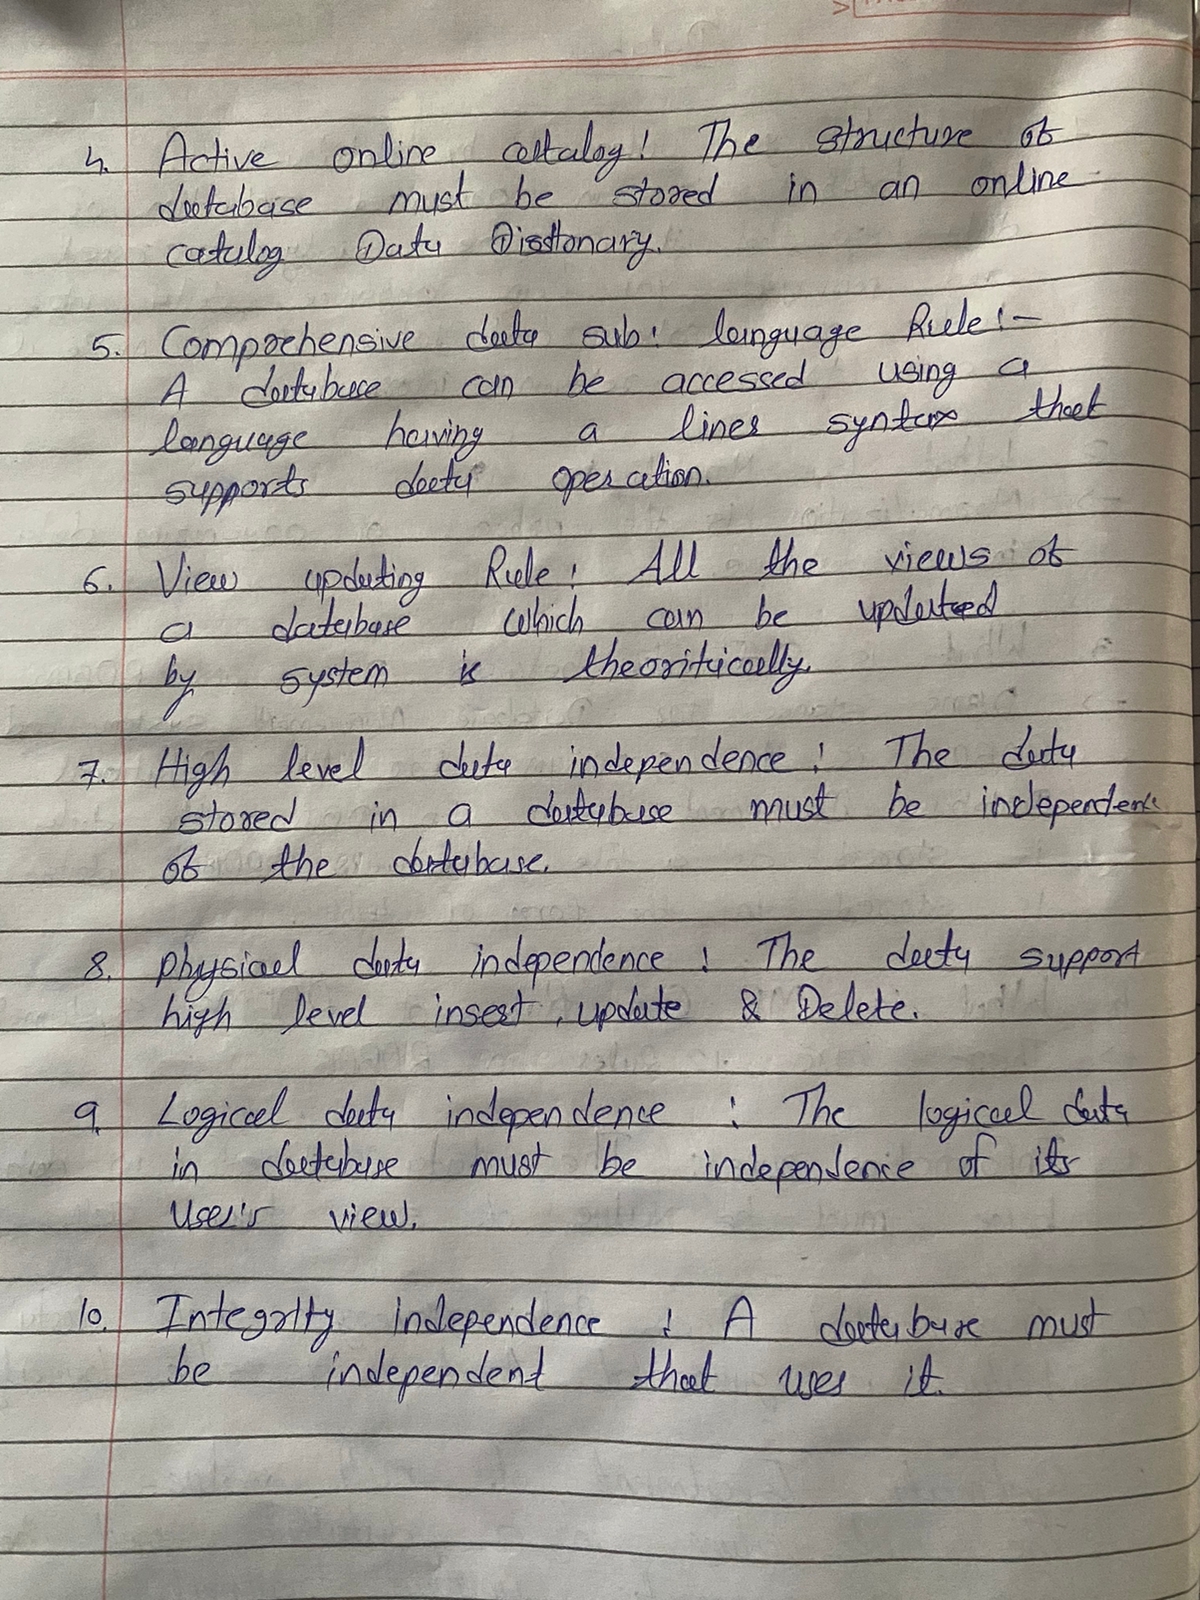 4. Active online catalog! The structure of
database must be stored in an online
catalog Data Disctonary.
5. Comprehensive data sub! language Rule!-
A database can be accessed using a
language having a lines syntax that
supports data operation.
6. View updating Rule! All the views of
a database which can be updated
by system is theoriticcally.
7. High level data independence! The data
stored in a database must be independent
of the database.
8. physical data independence! The data support
high level insert, update & Delete.
9. Logical data independence! The logical data
in database must be independence of its
User's view.
10. Integrity independence! A database must
be independent that uses it.